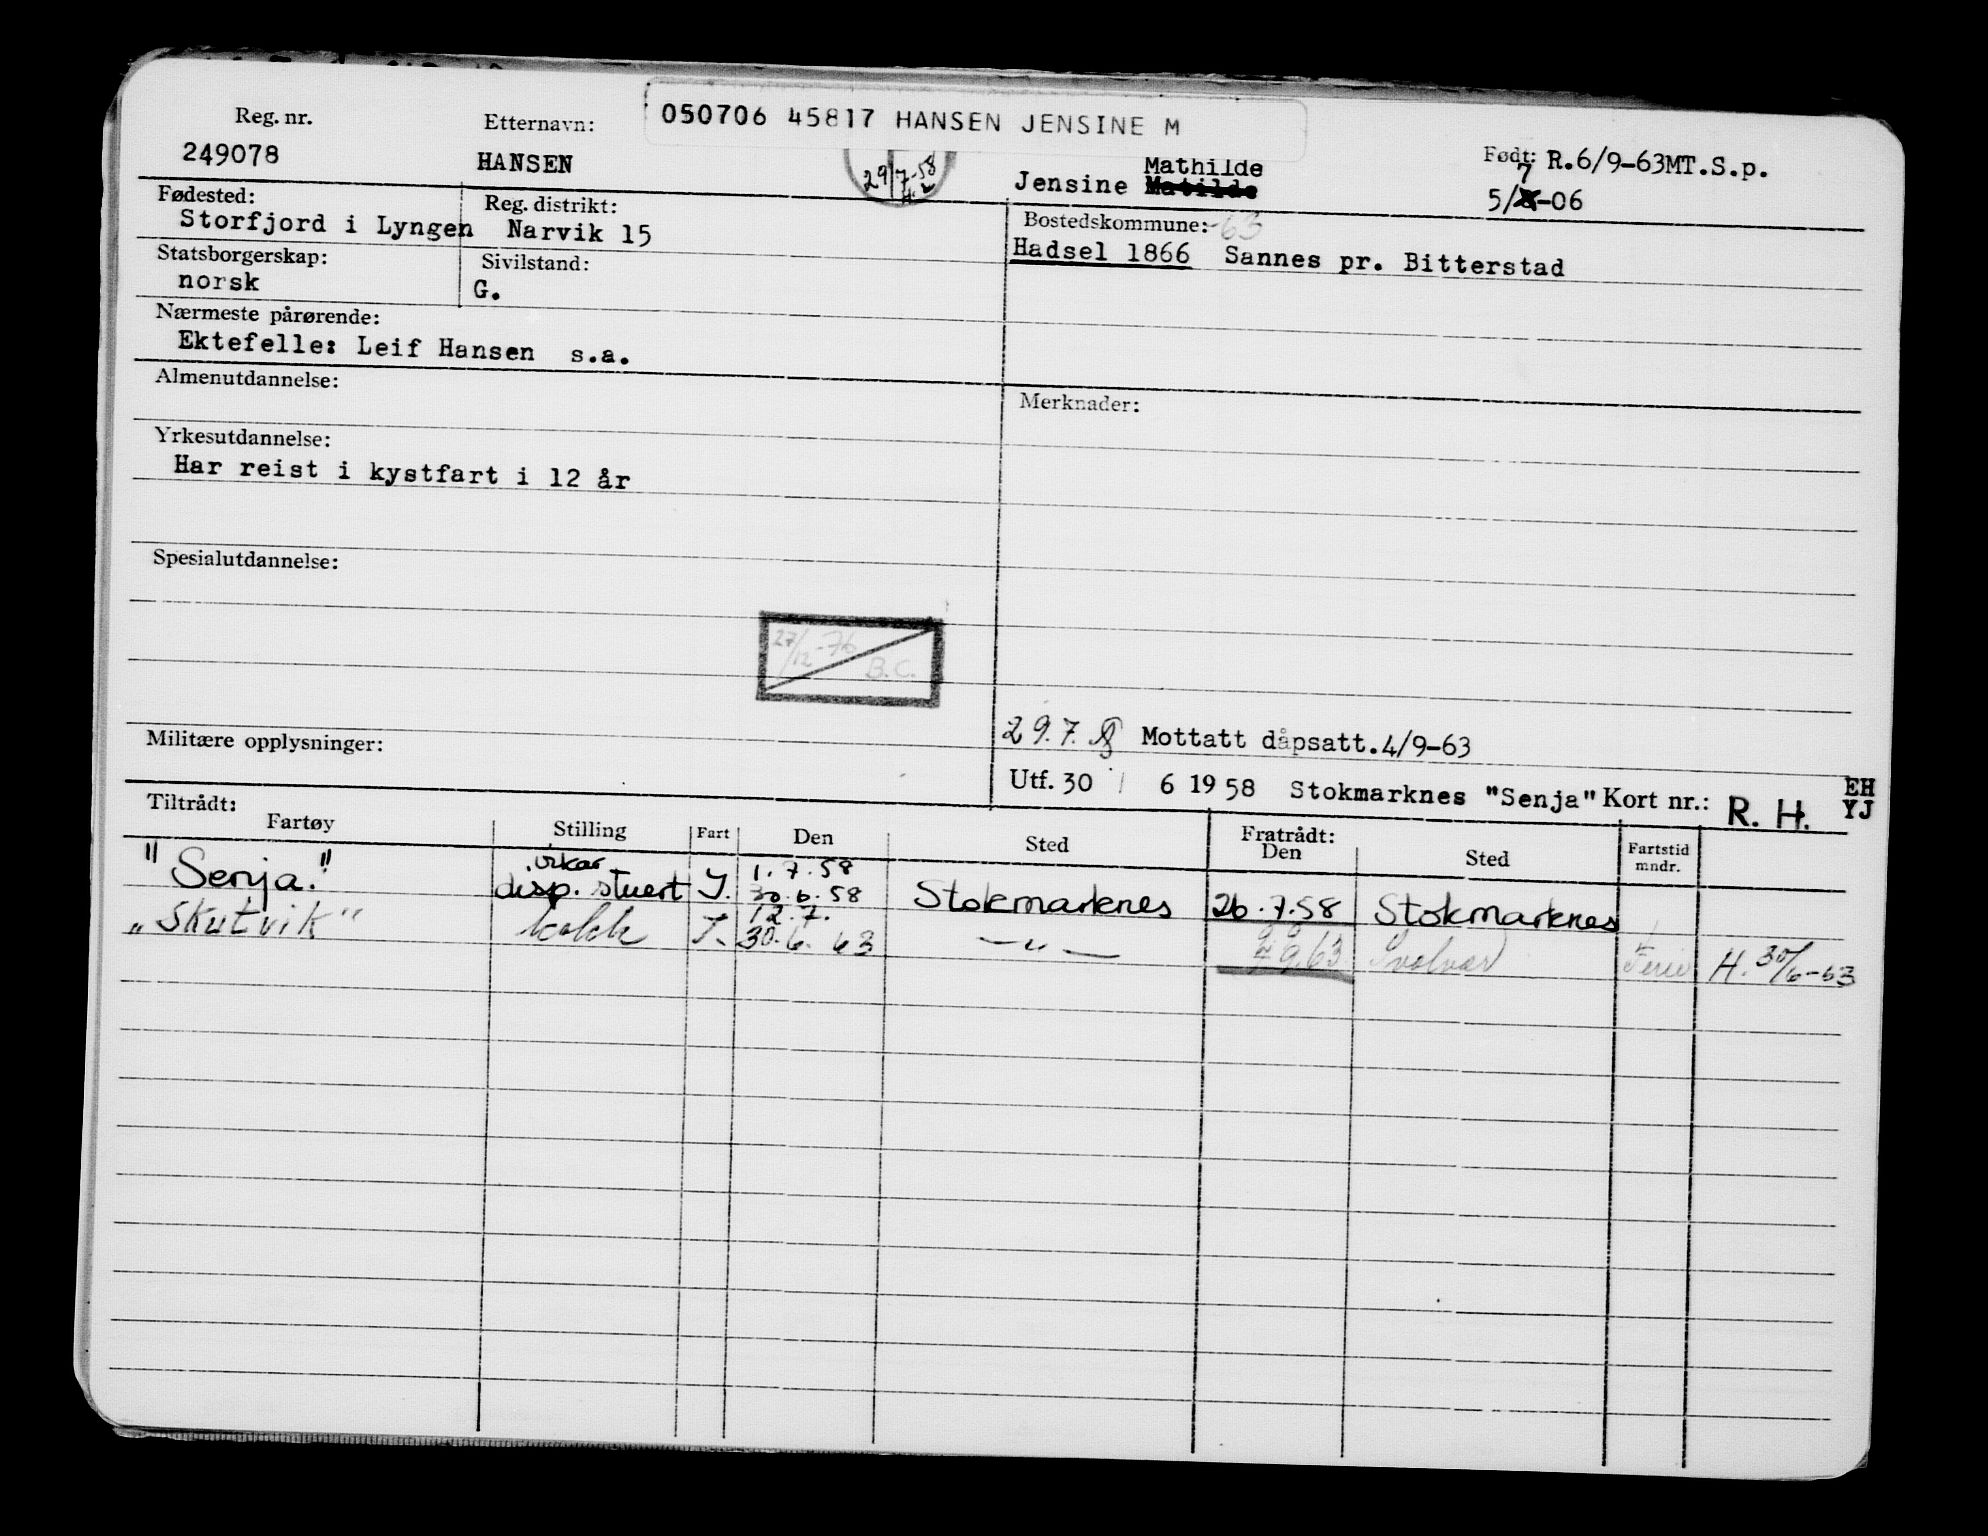 050706 45817 HANSEN JENSINE M
Reg. nr. Etternavn: Født: R.6/9-63MT.S.p.
249078 HANSEN 29/7-58 Jensine Mathilde 5/7-06
Fødested: Reg. distrikt: Bostedskommune: -63
Storfjord i Lyngen Narvik 15 Hadsel 1866 Sannes pr. Bitterstad
Statsborgerskap: Sivilstand:
norsk G.
Nærmeste pårørende:
Ektefelle: Leif Hansen s.a.
Almenutdannelse:
Merknader:
Yrkesutdannelse:
Har reist i kystfart i 12 år
Spesialutdannelse:
27/12-76
B.C.
29.7. Mottatt dåpsatt.4/9-63
Militære opplysninger:
Utf. 30 6 1958 Stokmarknes "Senja" Kort nr.: R. H. EH
YJ
Tiltrådt: Fratrådt:
Fartøy Stilling Fart Den Sted Den Sted Fartstid mndr.
vikar 1.7.58
"Senja." desp. stuert 30.6.58 Stokmarknes 26.7.58 Stokmarknes
12.7.
"Skutvik" kokk 30.6.63 — " — 9.63 Svolvær Ferie H. 30/6-63